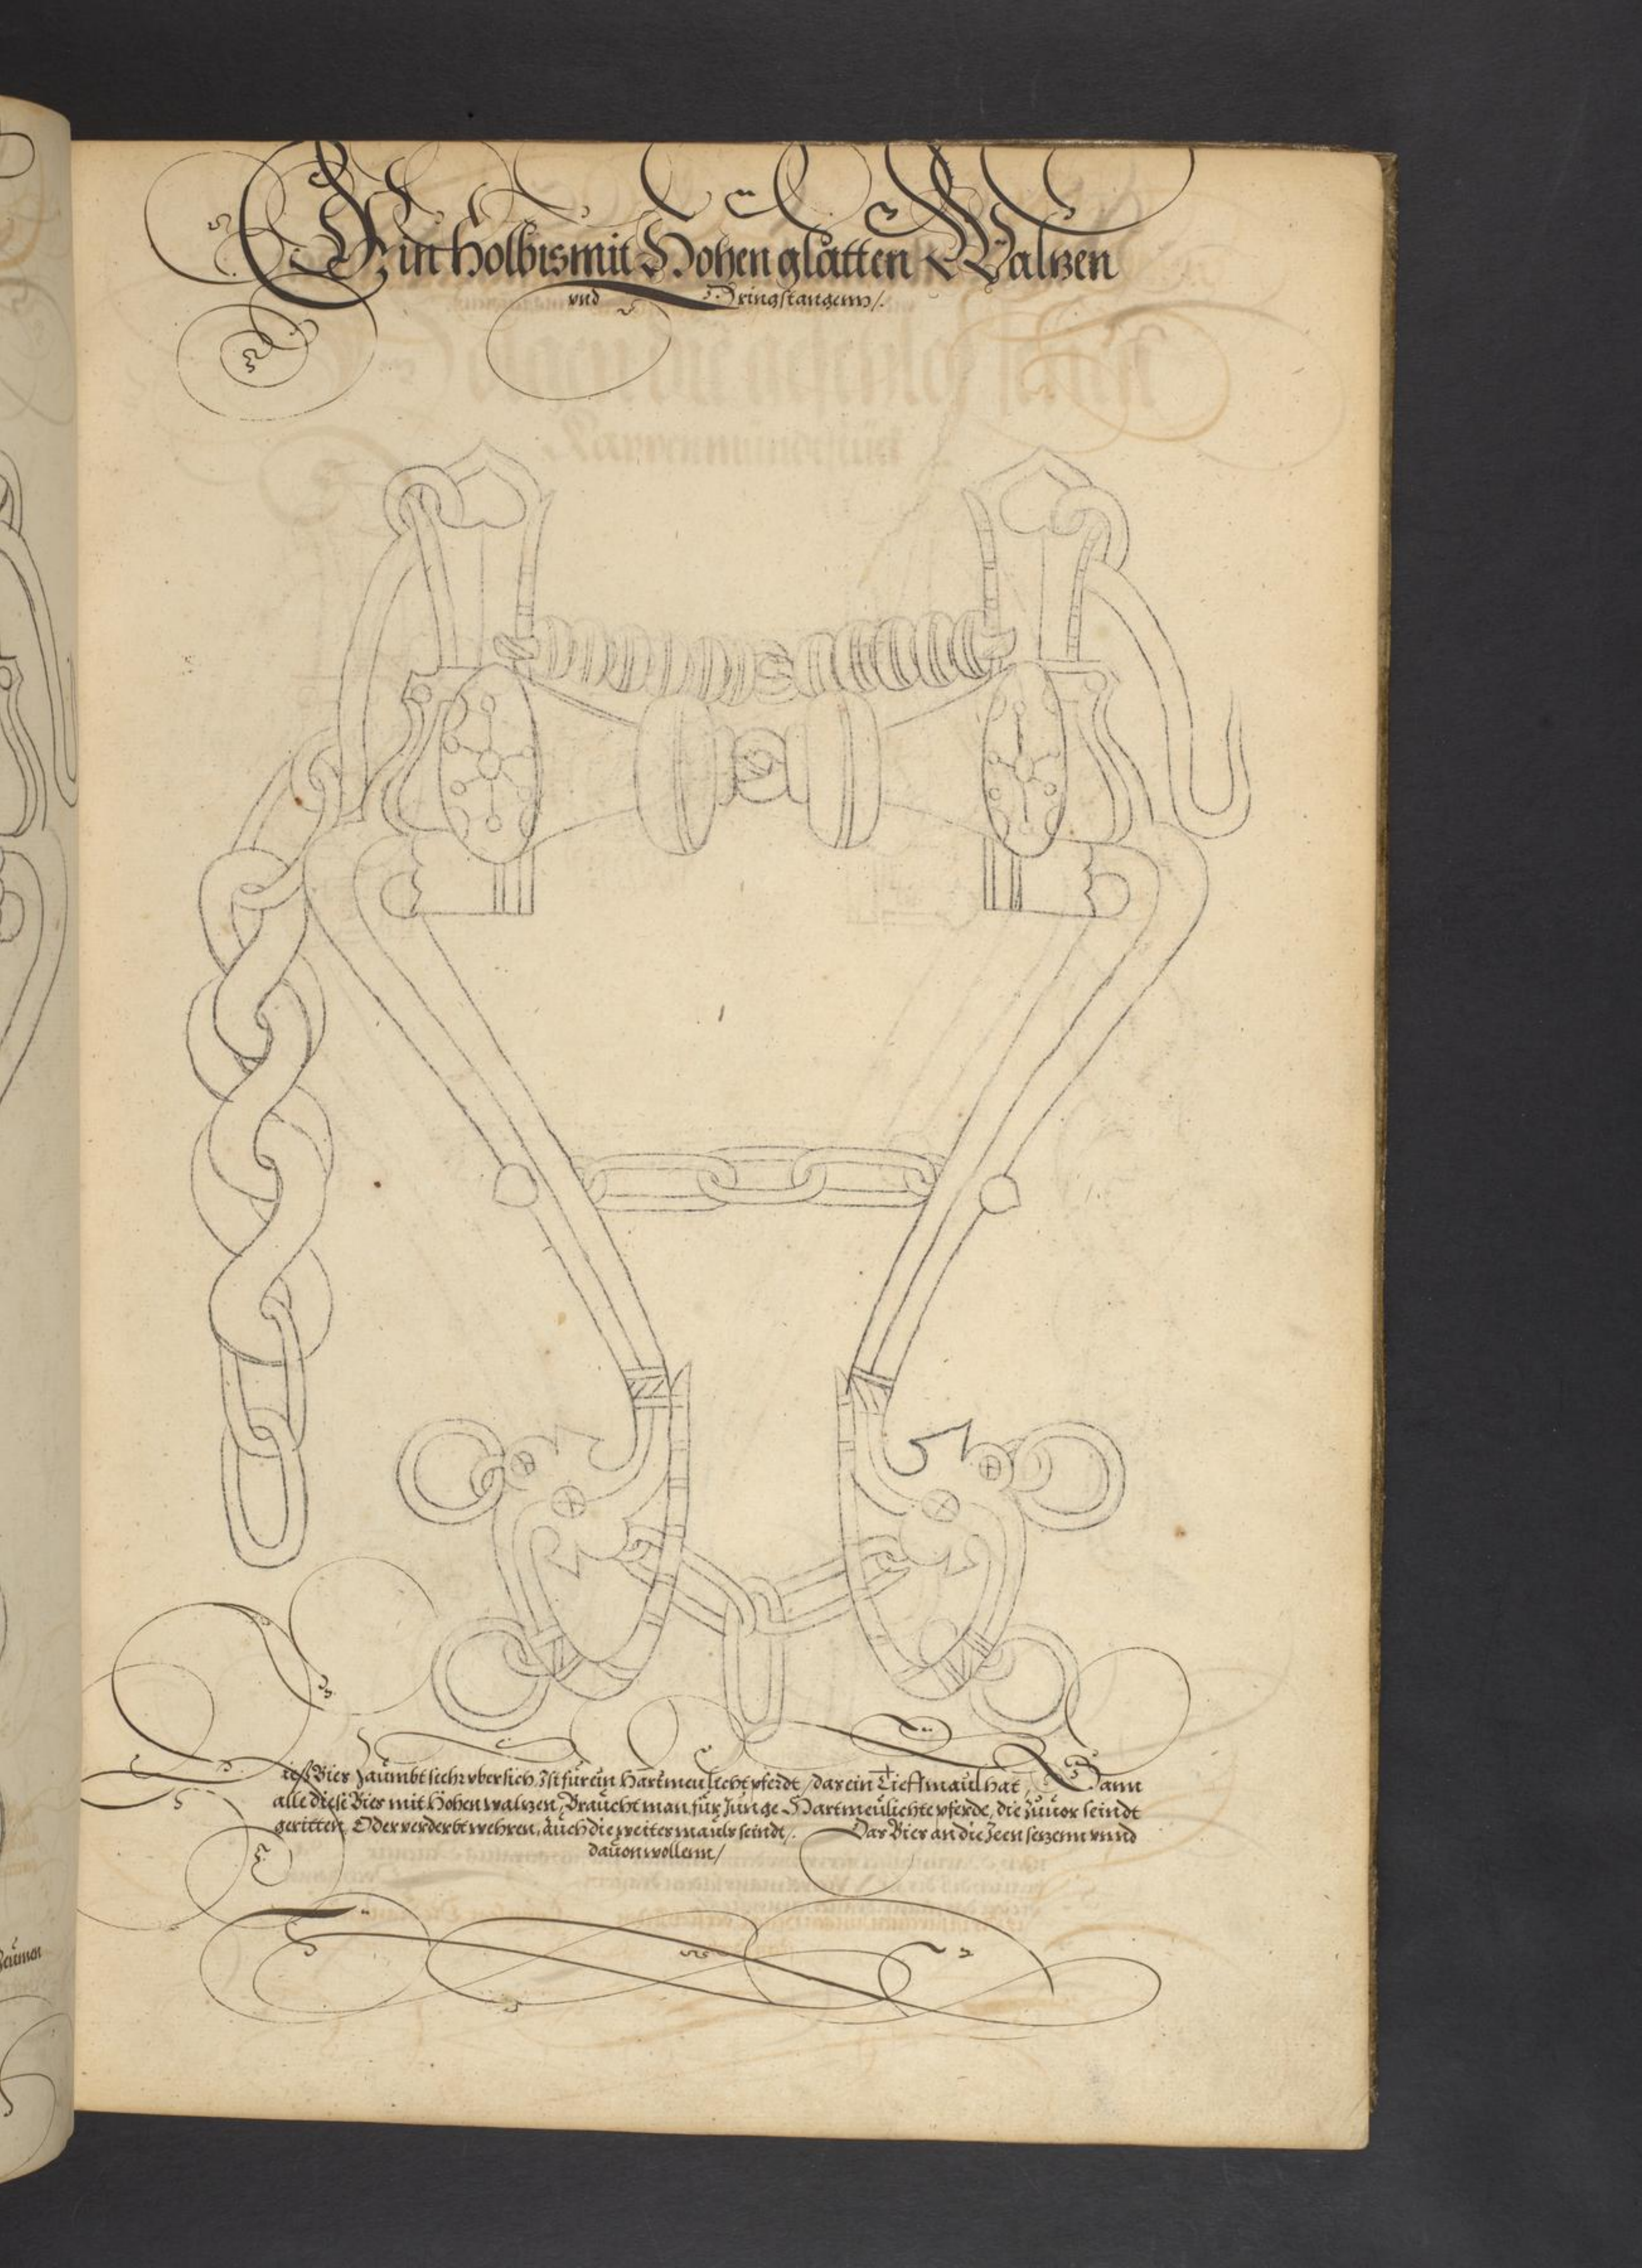 Ein Holbis mit Hohen glatten Walzen
vnd Springstangenn/.
ieß Bies Zaümbt sich vbersich, Ist für ein Hartmeülicht pferdt / das ein Tieff maül hat, Dann
alle diese Bies mit Hohen walzen, Braücht man für Jünge Hartmeülichte pferde, die züuor seindt
geritten, Oder verderbt wehren, aüch die weites maüls seindt/. Das Bies an die Zeen sezenn vnnd
dauon wollenn/
Zeümen